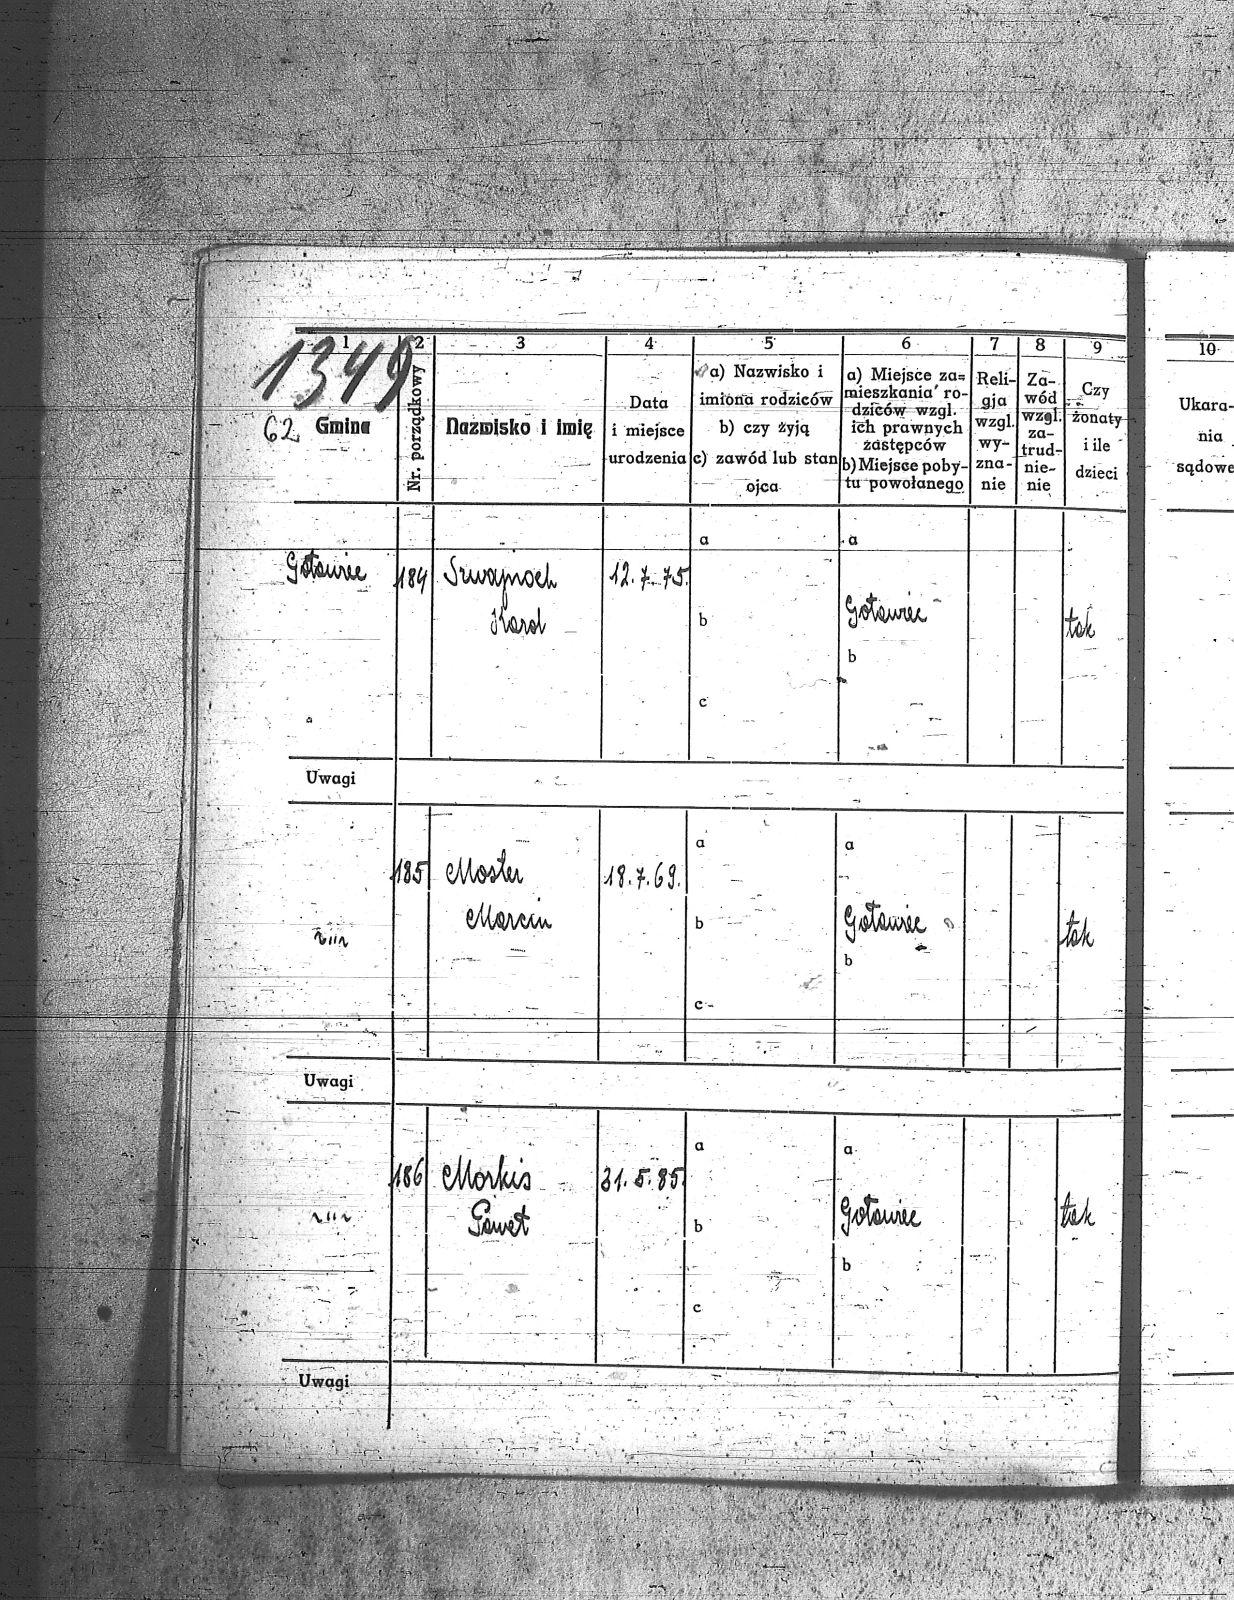 1349
62
1
2
3
4
5
6
7
8
9
10
Gmina
Nr. porządkowy
Nazwisko i imię
Data
i miejsce
urodzenia
a) Nazwisko i
imiona rodziców
b) czy żyją
c) zawód lub stan
ojca
a) Miejsce za=
mieszkania ro-
dziców wzgl.
ich prawnych
zastępców
b) Miejsce poby-
tu powołanego
Reli-
gja
wzgl.
wy-
zna-
nie
Za-
wód
wzgl.
za-
trud-
nie-
nie
Czy
żonaty
i ile
dzieci
Ukara-
nia
sądowe
a
a
Gotawiec
184
Szwajnoch
12.7.75.
Karol
b
Gotawiec
tak
b
c
Uwagi
a
a
185
Moster
18.7.69.
Marcin
b
Gotawiec
tak
b
c
Uwagi
a
a
186
Morkis
31.5.85.
Paweł
b
Gotawiec
tak
b
c
Uwagi